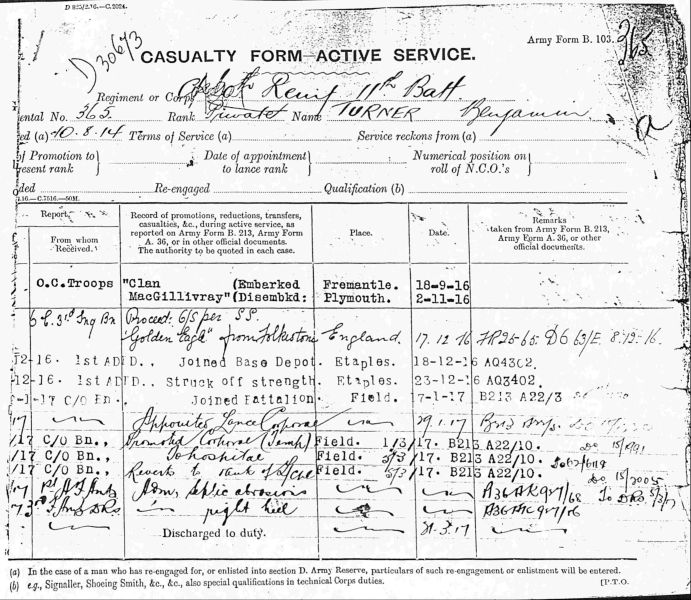 D 825/2.16.—C.2024.
D 30673
Army Form B. 103.
365
CASUALTY FORM—ACTIVE SERVICE.
Regiment or Corps Reinf 11th Batt
ental No. 365. Rank Private Name TURNER Benjamin
ed (a) 10.8.14 Terms of Service (a) Service reckons from (a)
of Promotion to Date of appointment Numerical position on
resent rank to lance rank roll of N.C.O.'s
ded Re-engaged Qualification (b)
2.16.—C.7516.—50M.
Report. Record of promotions, reductions, transfers, casualties, &c., during active service, as reported on Army Form B. 213, Army Form A. 36, or in other official documents. The authority to be quoted in each case. Place. Date. Remarks taken from Army Form B. 213, Army Form A. 36, or other official documents.
From whom Received.
O.C. Troops "Clan (Embarked Fremantle. 18-9-16
MacGillivray" (Disembkd: Plymouth. 2-11-16
3rd Trng Bn Proceed: O/S per S.S.
"Golden Eagle" from Folkestone England. 17.12.16 8.12.16.
12-16. 1st ADBD., Joined Base Depot. Etaples. 18-12-16 AQ4302.
-12-16. 1st ADBD., Struck off strength. Etaples. 23-12-16 AQ3402.
-1-17 C/O Bn., Joined Battalion Field. 7-1-17 B213 A22/3
17 Appointed Lance Corporal 29.1.17
/17 C/O Bn., Promoted Corporal (Temp) Field. 1/3/17. B213 A22/10.
/17 C/O Bn., To hospital Field. 5/3/17. B213 A22/10.
/17 C/O Bn., Reverts to rank of L/Cpl Field. 5/3/17. B213 A22/10.
Adm. septic abrasions
right heel
Discharged to duty. 31.3.17
(a) In the case of a man who has re-engaged for, or enlisted into section D. Army Reserve, particulars of such re-engagement or enlistment will be entered.
(b) e.g., Signaller, Shoeing Smith, &c., &c., also special qualifications in technical Corps duties. [P.T.O.